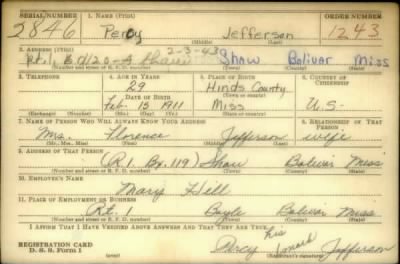 SERIAL NUMBER 1. NAME (Print) ORDER NUMBER
2846 Percy Jefferson 1243
(First) (Middle) (Last)
2. ADDRESS (Print) 2-3-43
Rt. 1, B d120-A Shaw Shaw Bolivar Miss
(Number and street or R. F. D. number) (Town) (County) (State)
3. TELEPHONE 4. AGE IN YEARS 5. PLACE OF BIRTH 6. COUNTRY OF CITIZENSHIP
29 Hinds County
DATE OF BIRTH (Town or county)
Feb. 15 1911 Miss U.S.
(Exchange) (Number) (Mo.) (Day) (Yr.) (State or country)
7. NAME OF PERSON WHO WILL ALWAYS KNOW YOUR ADDRESS 8. RELATIONSHIP OF THAT PERSON
Mrs. Florence Jefferson wife
(Mr., Mrs., Miss) (First) (Middle) (Last)
9. ADDRESS OF THAT PERSON
(R1. Bx. 119) Shaw Bolivar Miss
(Number and street or R. F. D. number) (Town) (County) (State)
10. EMPLOYER'S NAME
Mary Hill
11. PLACE OF EMPLOYMENT OR BUSINESS
Rt. 1 Boyle Bolivar Miss
(Number and street or R. F. D. number) (Town) (County) (State)
I AFFIRM THAT I HAVE VERIFIED ABOVE ANSWERS AND THAT THEY ARE TRUE.
REGISTRATION CARD his
D. S. S. Form 1 Percy Jefferson
mark
(Registrant's signature)